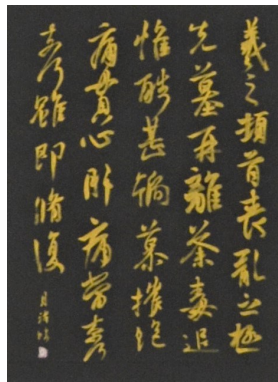 羲之頓首喪亂之極
先墓再離荼毒追
惟酷甚號慕摧絕
痛貫心肝痛當奈何
奈何雖即脩復